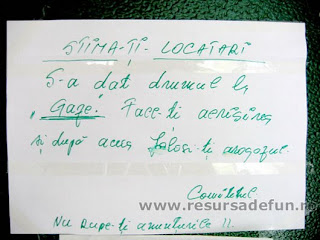 STIMA-ȚI - LOCATARI
S-a dat drumul la
"Gaze". Face-ti aerisirea
și după aceea folosi-ți aragazul
Comitetul
Nu rupe-ți anunturile !!
www.resursadefun.r